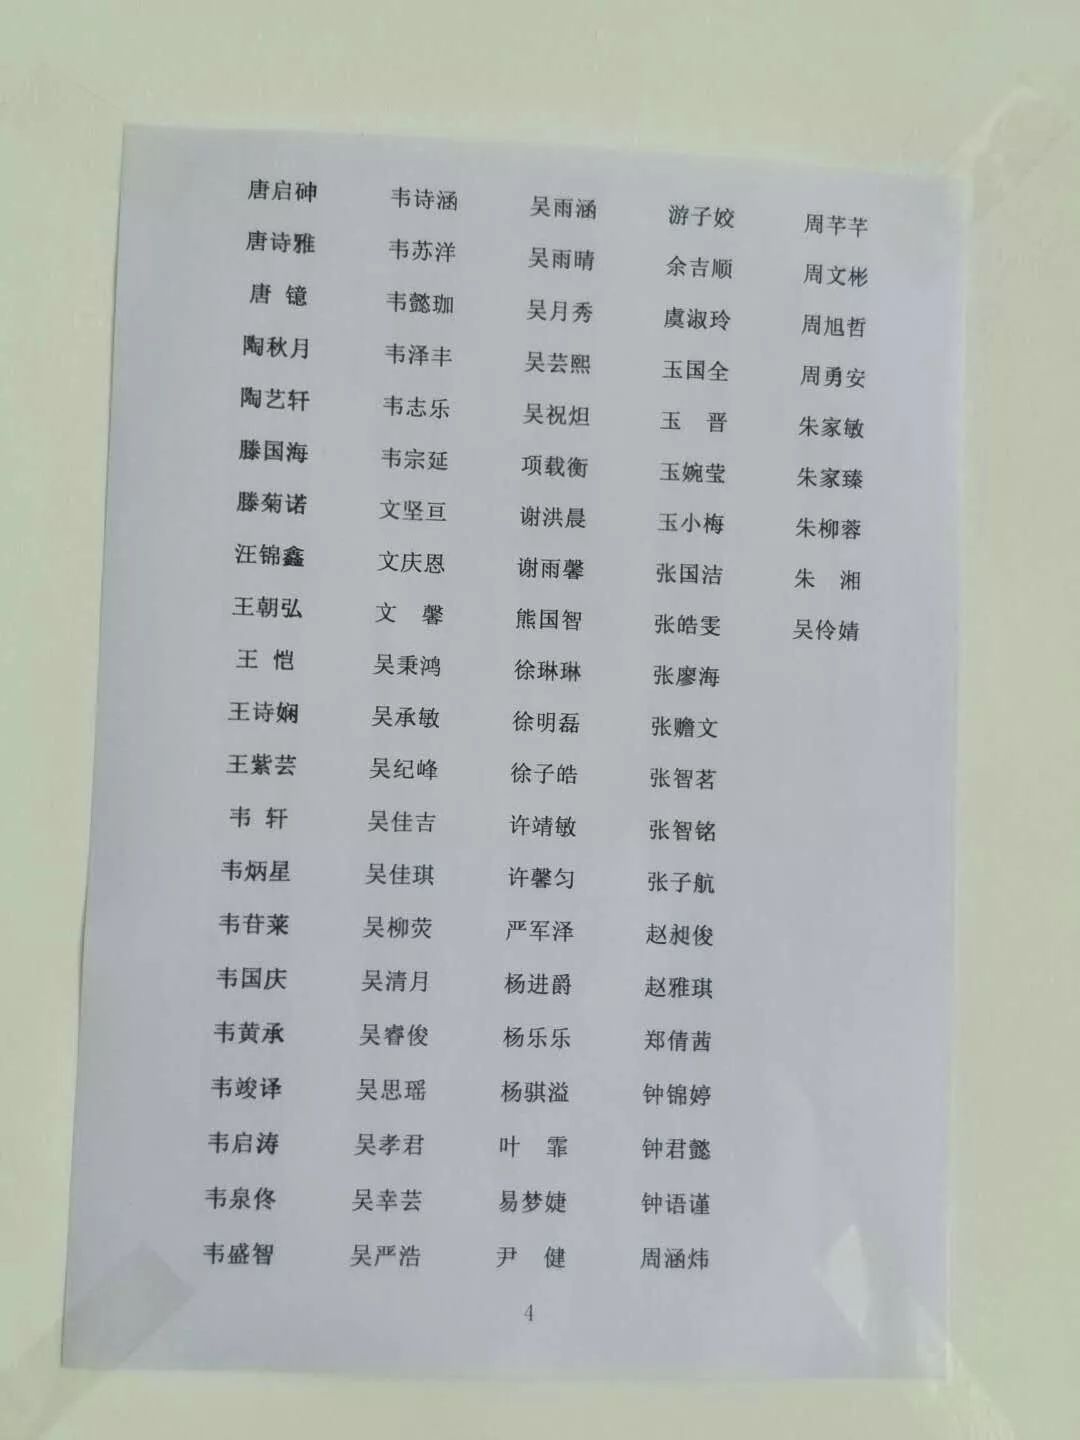 唐启砷 韦诗涵 吴雨涵 游子姣 周芊芊
唐诗雅 韦苏洋 吴雨晴 余吉顺 周文彬
唐 镱 韦懿珈 吴月秀 虞淑玲 周旭哲
陶秋月 韦泽丰 吴芸熙 玉国全 周勇安
陶艺轩 韦志乐 吴祝炟 玉 晋 朱家敏
滕国海 韦宗延 项载衡 玉婉莹 朱家臻
滕菊诺 文坚亘 谢洪晨 玉小梅 朱柳蓉
汪锦鑫 文庆恩 谢雨馨 张国洁 朱 湘
王朝弘 文 馨 熊国智 张皓雯 吴伶婧
王 恺 吴秉鸿 徐琳琳 张廖海
王诗娴 吴承敏 徐明磊 张赡文
王紫芸 吴纪峰 徐子皓 张智茗
韦 轩 吴佳吉 许靖敏 张智铭
韦炳星 吴佳琪 许馨匀 张子航
韦苷莱 吴柳荧 严军泽 赵昶俊
韦国庆 吴清月 杨进爵 赵雅琪
韦黄承 吴睿俊 杨乐乐 郑倩茜
韦竣译 吴思瑶 杨骐溢 钟锦婷
韦启涛 吴孝君 叶 霏 钟君懿
韦泉佟 吴幸芸 易梦婕 钟语谨
韦盛智 吴严浩 尹 健 周涵炜
4